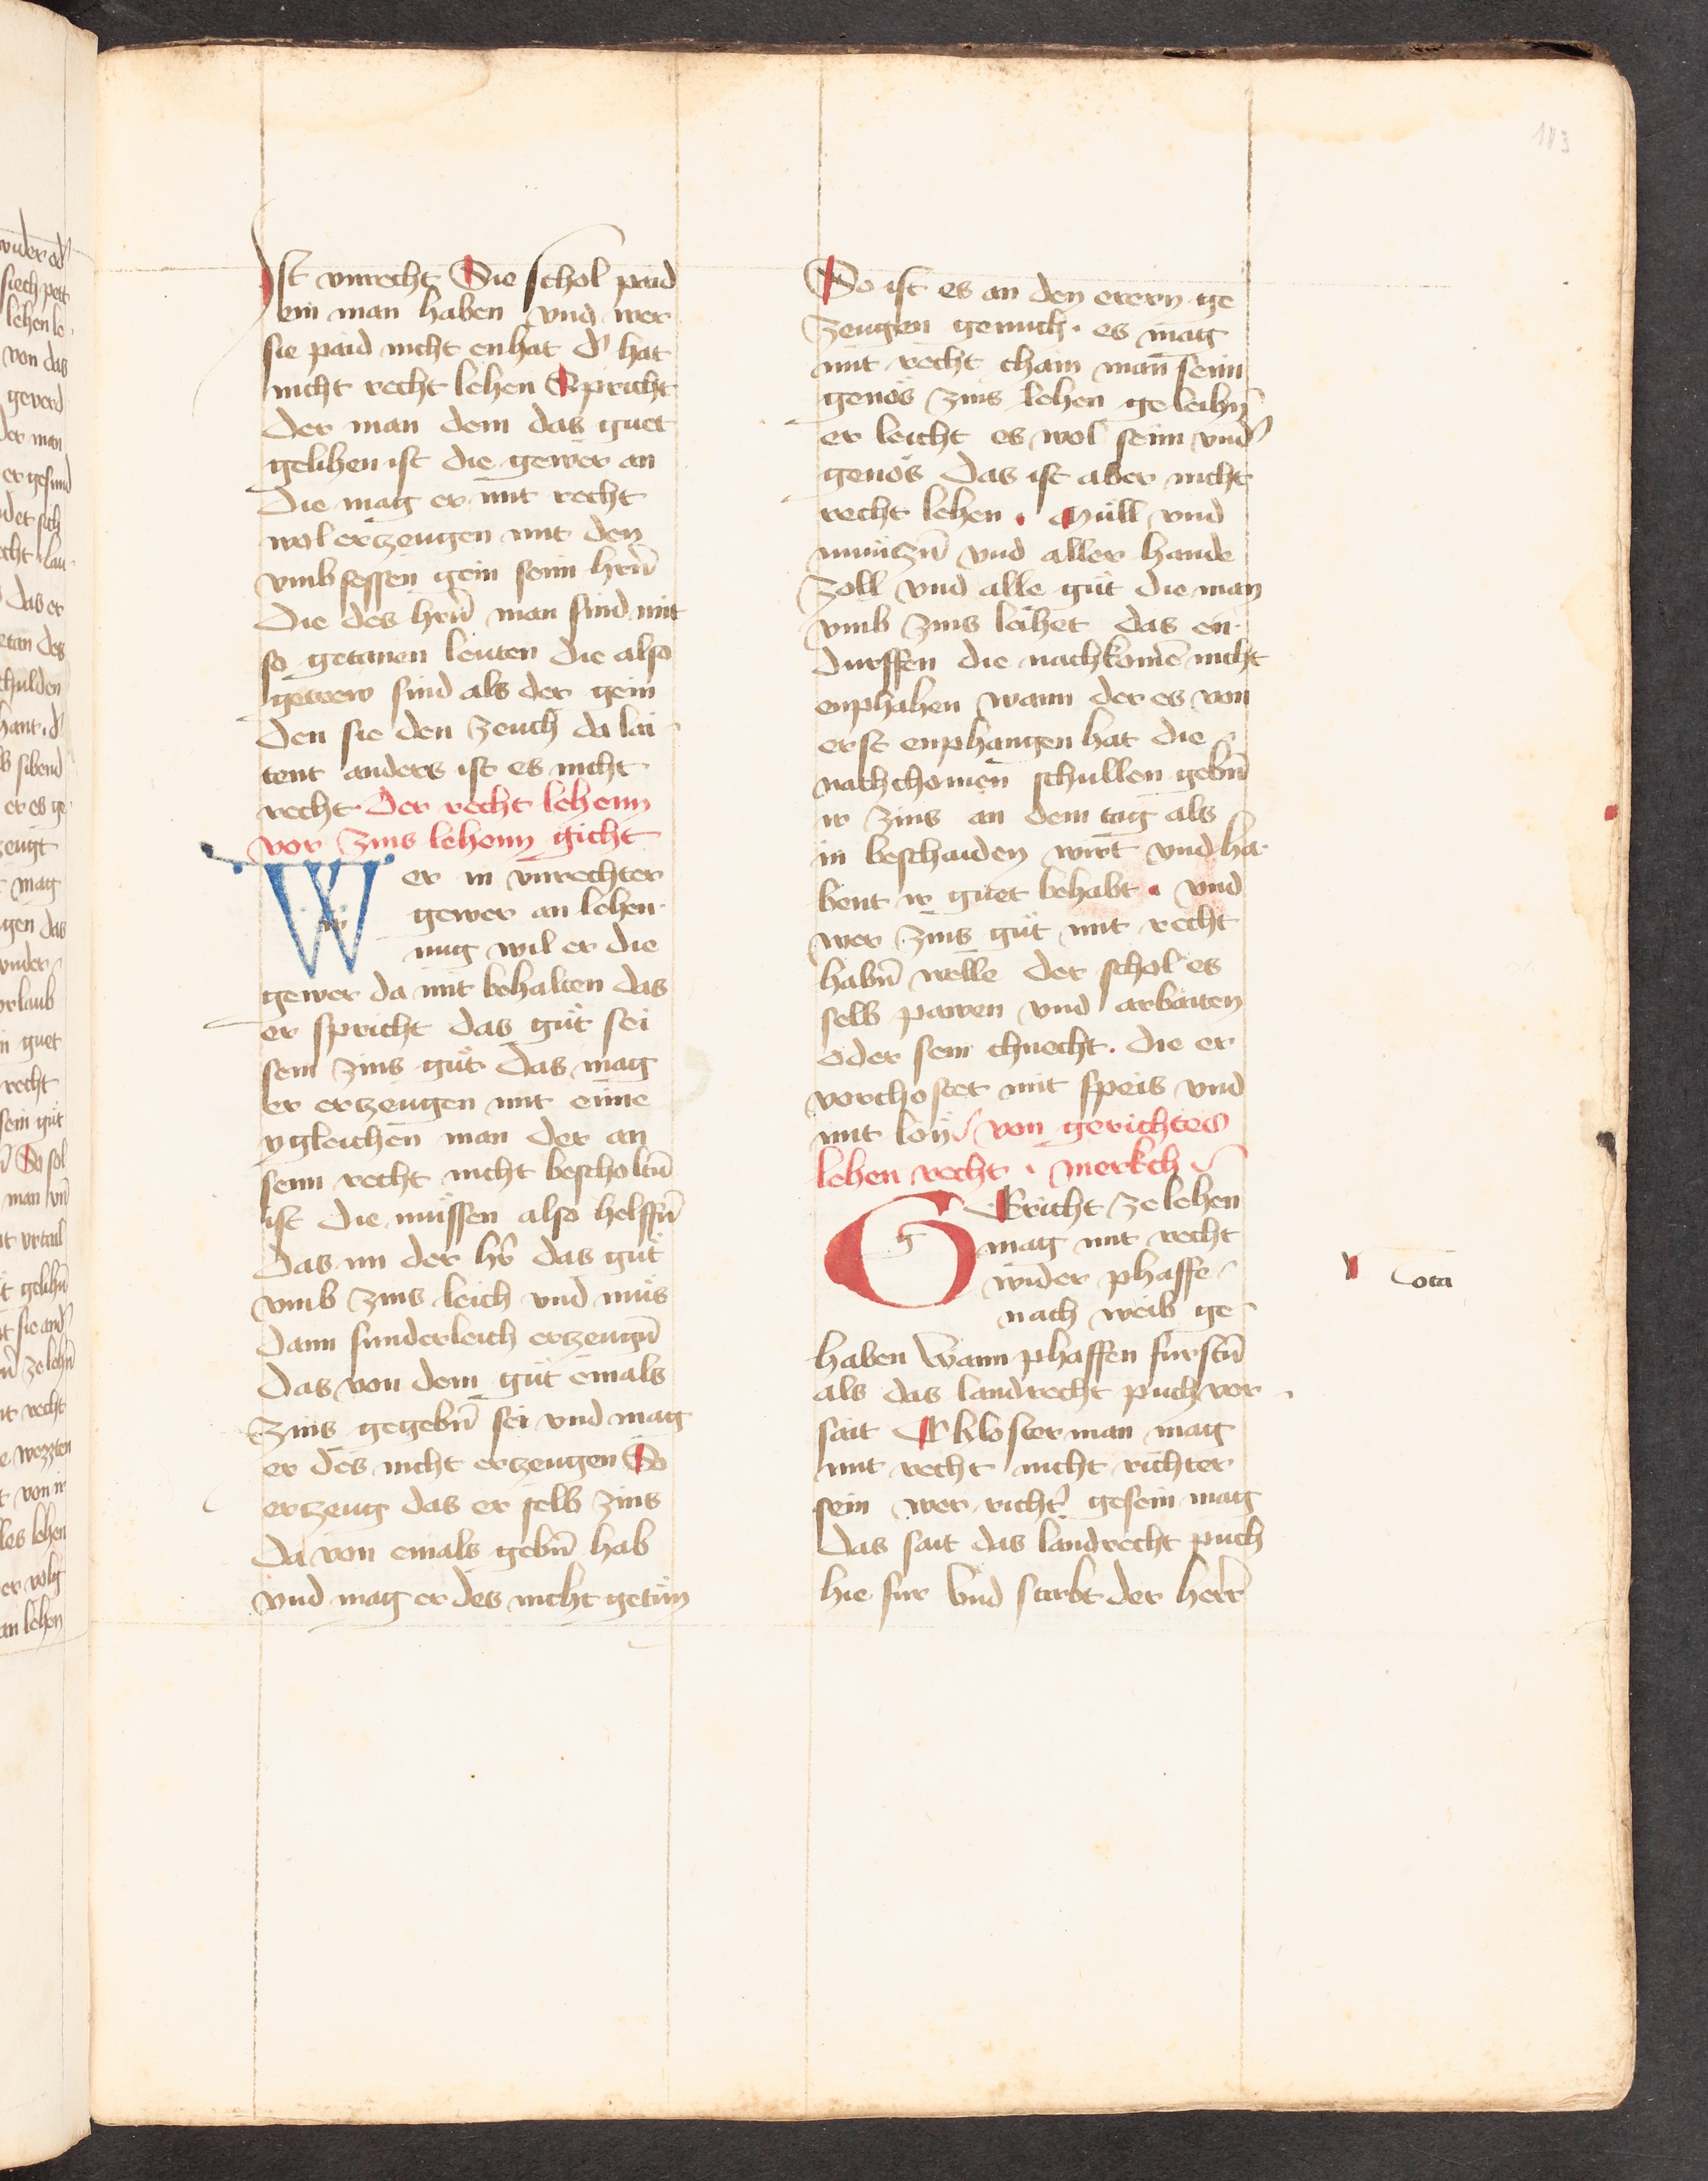 113
Ist vnrecht Die schol paid
ein man haben vnd wer
sie paid nicht enhat d' hat
nicht recht lehen Spricht
der man dem das guet
gelihen ist die gewer an
die mag er mit recht
wol erzeugen mit den
vmbsessen gein seim hrn̄
die des hrn̄ man sind mit
so getanen leuten die also
getrew sind als der gein
den sie den zeuch da lai
tent anders ist es nicht
recht Der recht lehenn
vor zins lehenn gicht
Wer in vnrechter
gewer an lehen
nug wil er die
gewer da mit behalten das
er spricht das güt sei
sein zins güt das mag
er erzeugen mit eime
ygleichen man der an
seim recht nicht bescholtn̄
ist die müssen also helffn̄
das im der hr̄ das güt
vmb zins leich vnd müs
dann sunderleich erzeugn̄
das von dem güt emals
zins gegebn̄ sei vnd mag
er des nicht erzeugen So
erzeug das er selb zins
da von emals gebn̄ hab
vnd mag er des nicht getün
So ist es an den erern ge
zeugen genuch · es mag
mit recht chain man̄ seim
genös zins lehen geleihn̄
er leicht es wol seim vnd'
genös das ist aber nicht
recht lehen · Müll vnd
münzn̄ vnd aller hande
zoll vnd alle güt die man
vmb zins leihet das en
durffen die nachkomē nicht
enphahen wann der es von
erst enphangen hat die
nachchomen schullen gebn̄
ir zins an dem tag als
in beschaiden wirt vnd ha
bent ir guet behabt · vnd
wer zins güt mit recht
habn̄ welle der schol es
selb pawen vnd arbaiten
oder sein chnecht · die er
verchostet mit speis vnd
mit lon von gerichtes
lehen recht · merkch
GEricht ze lehen
mag mit recht
wider phaffe
nach weib ge
haben Wann phaffen furstn̄
als das landrecht puch vor
sait Ekloster man mag
mit recht nicht richter
sein wer richt' gesein mag
das sait das landrecht puch
hie fur Vnd starbt der herr̄
Nota